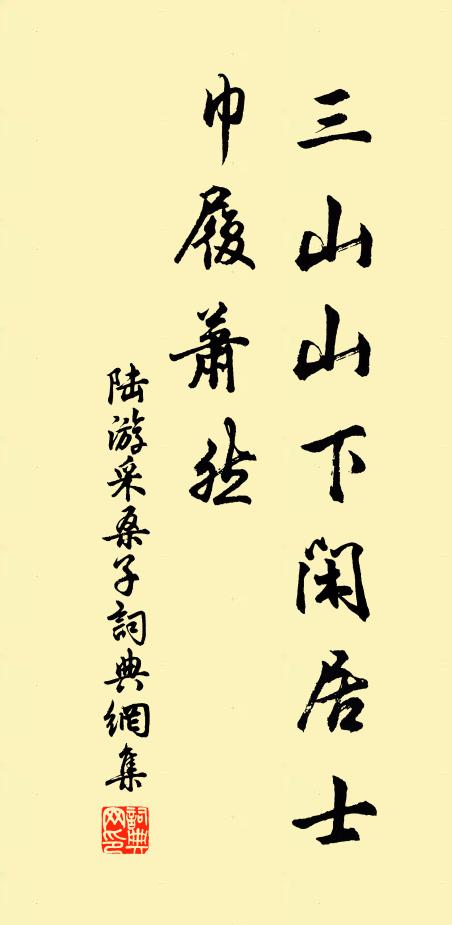 三山山下闲居士
巾履萧然
陆游采桑子詞典網集
詞典
网印